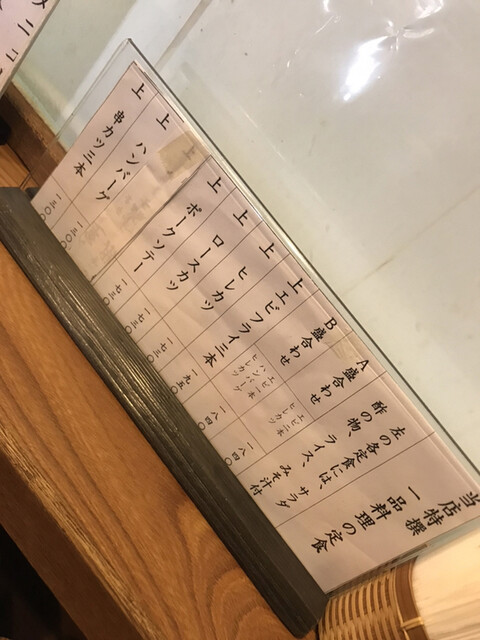 当店特撰
一品料理の定食
左の各定食には、サラダ
酢の物、ライス、みそ汁付
A盛合わせ エビ二本 ヒレカツ 一八四〇
B盛合わせ エビ一本 ハンバーグ ヒレカツ 一八四〇
上エビフライ三本 一九五〇
上ヒレカツ 一七三〇
上ロースカツ 一七三〇
上ポークソテー 一七三〇
上
上ハンバーグ 一三〇〇
上串カツ三本 一三〇〇